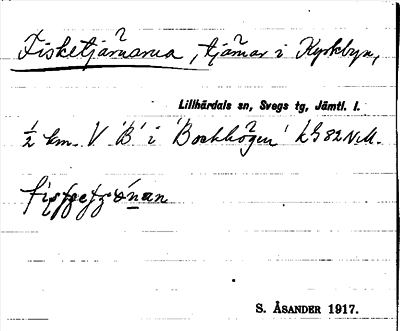 Fisketjärnarna, tjärnar i Kyrkbyn,
Lillhärdals sn, Svegs tg, Jämtl. l.
½ km. V. 'B' i 'Bockhögen' kg 82 N.M.
S. ÅSANDER 1917.